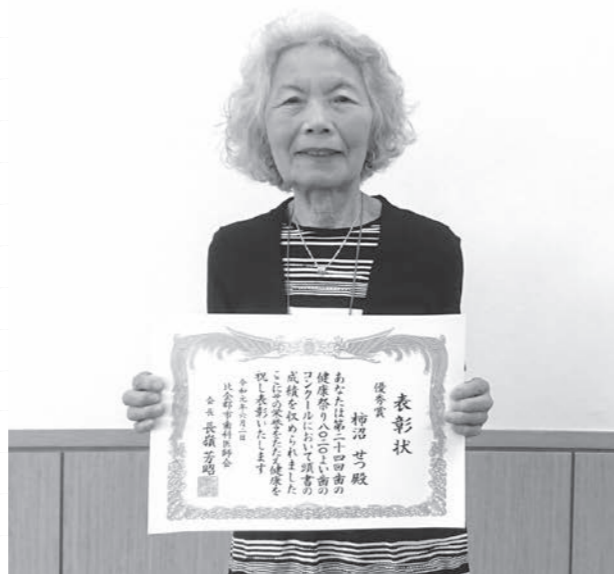 表彰状
優秀賞
柿沼 せつ殿
あなたは第二十四回歯の
健康祭り八〇二〇よい歯の
コンクールにおいて頭書の
成績を収められました
ここにその栄誉をたたえ健康を
祝し表彰いたします
令和元年六月二日
比企郡市歯科医師会
会長 長嶺芳昭